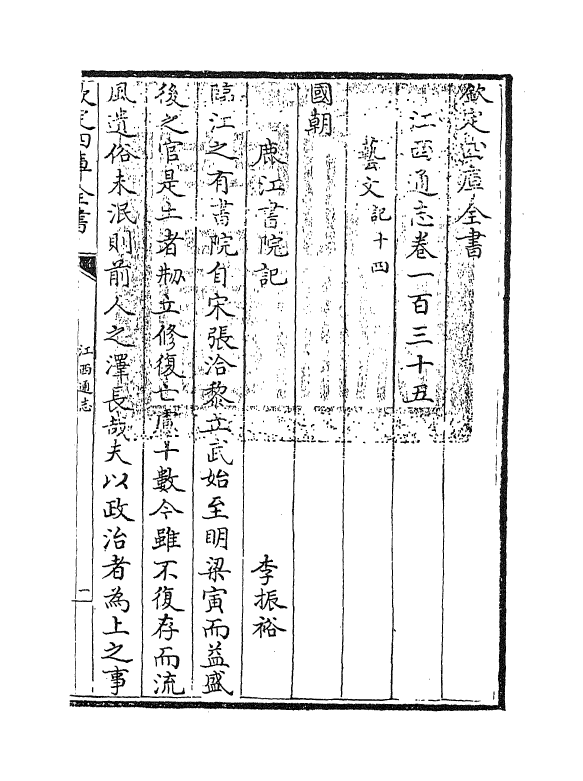 欽定四庫全書
江西通志卷一百三十五
藝文記十四
國朝
鹿江書院記 李振裕
臨江之有書院自宋張洽黎立武始至明梁寅而益盛
後之官是土者剏立修復亡慮十數今雖不復存而流
風遺俗未泯則前人之澤長哉夫以政治者為上之事
欽定四庫全書
江西通志
一